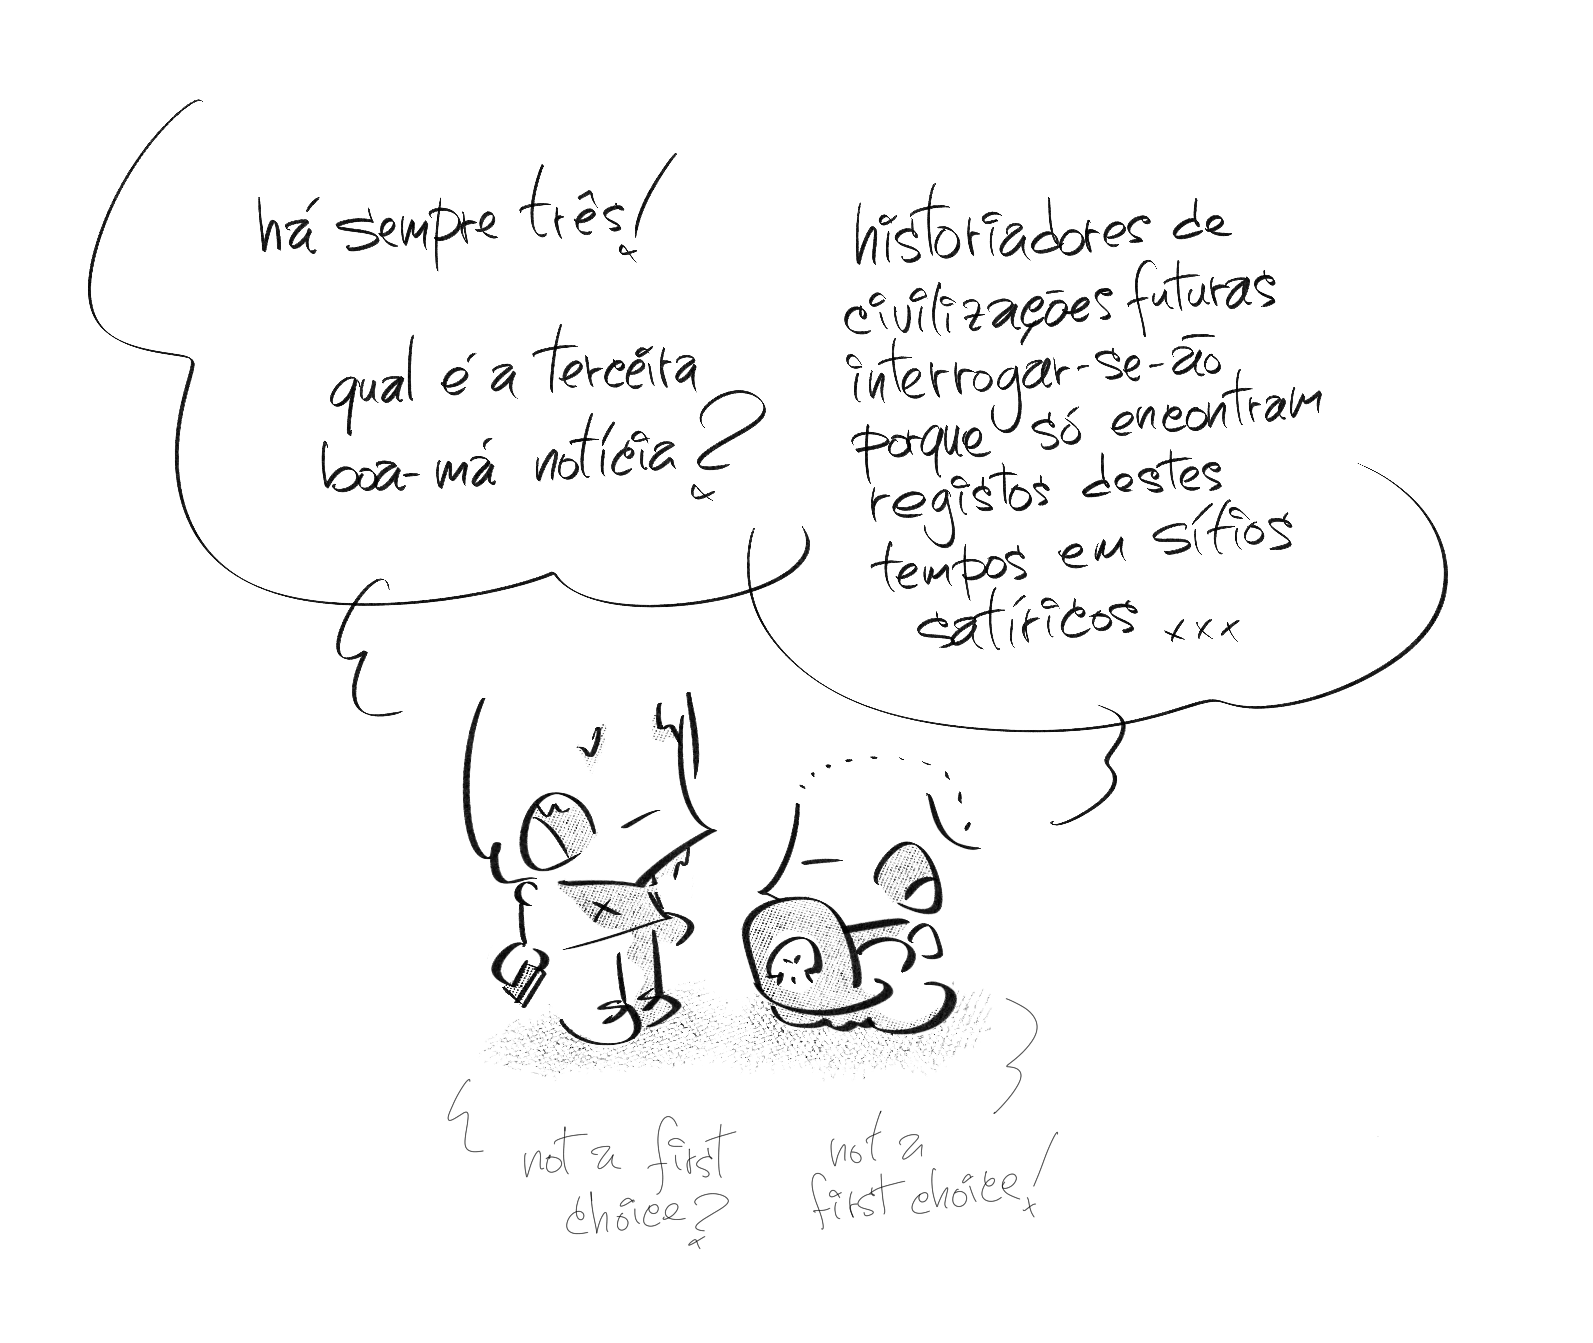 há sempre três!
qual é a terceira
boa-má notícia?
historiadores de
civilizações futuras
interrogar-se-ão
porque só encontram
registos destes
tempos em sítios
satíricos xxx
not a first
choice?
not a
first choice!